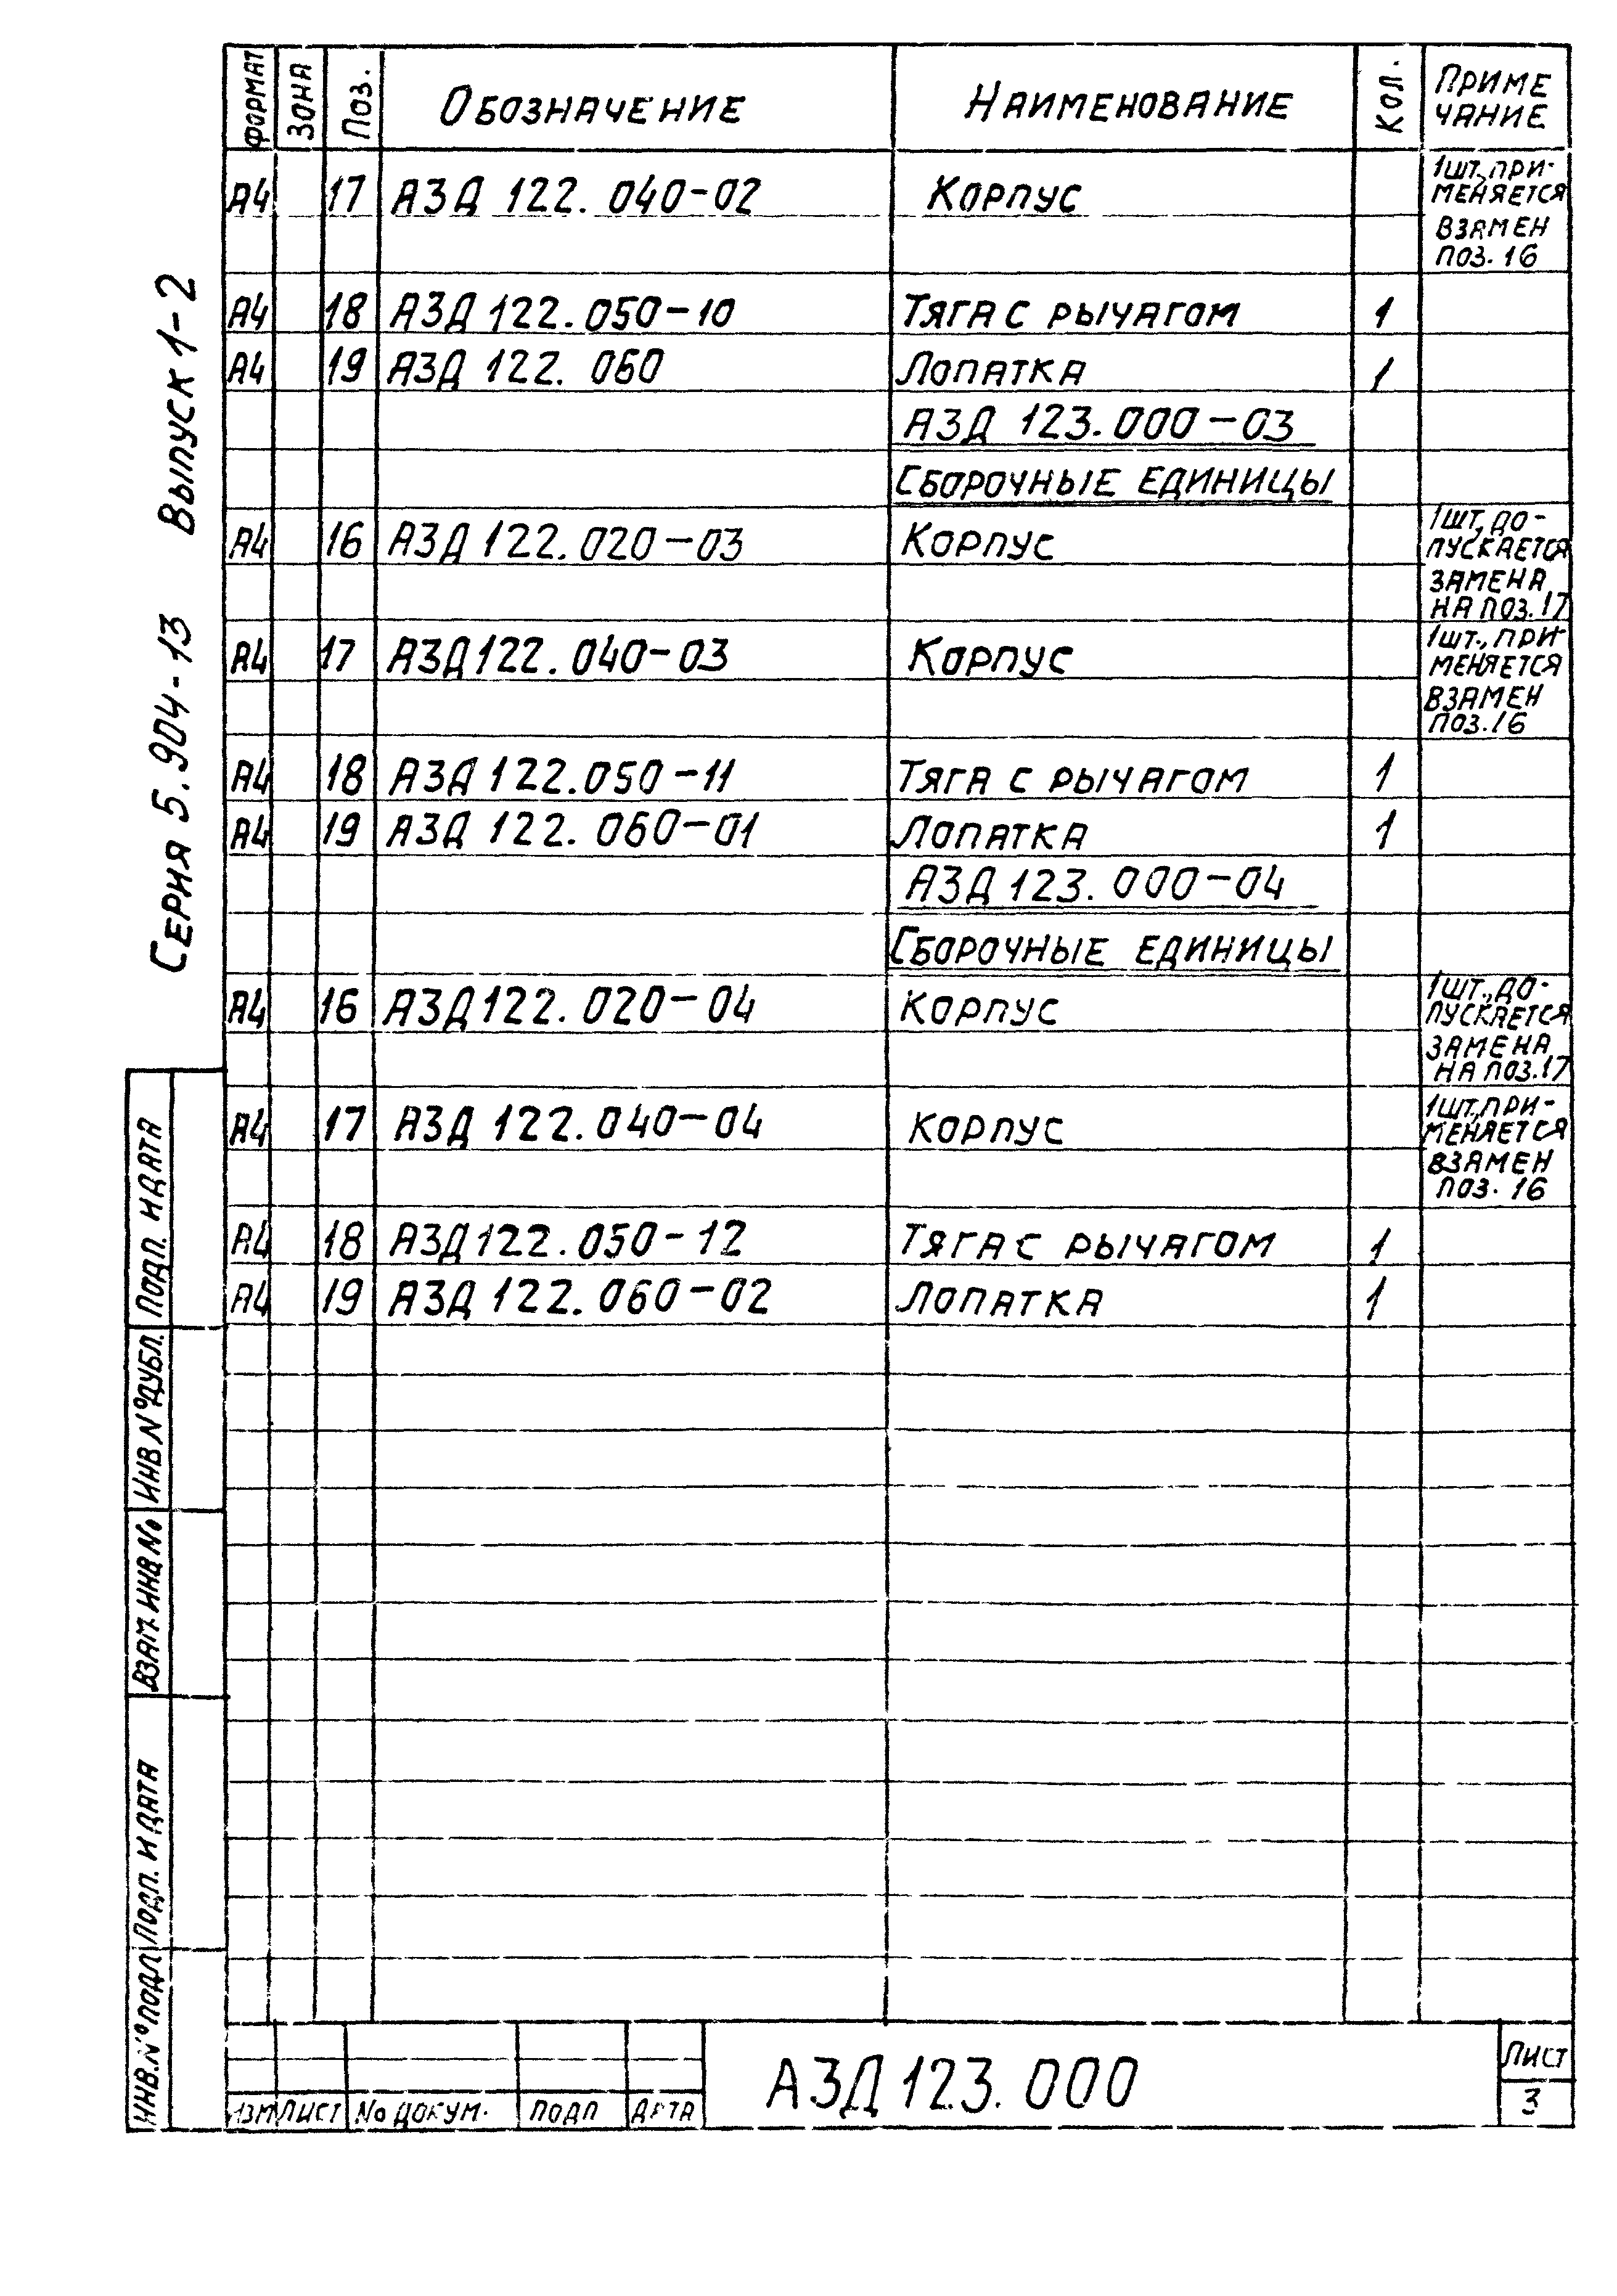 ФОРМАТ ЗОНА ПОЗ. ОБОЗНАЧЕНИЕ НАИМЕНОВАНИЕ КОЛ. ПРИМЕ
ЧАНИЕ
А4 17 АЗД 122.040-02 КОРПУС 1ШТ., ПРИ-
МЕНЯЕТСЯ
ВЗАМЕН
ПОЗ. 16
А4 18 АЗД 122.050-10 ТЯГА С РЫЧАГОМ 1
А4 19 АЗД 122.060 ЛОПАТКА 1
АЗД 123.000-03
СБОРОЧНЫЕ ЕДИНИЦЫ
А4 16 АЗД 122.020-03 КОРПУС 1ШТ, ДО-
ПУСКАЕТСЯ
ЗАМЕНА
НА ПОЗ.17
А4 17 АЗД 122.040-03 КОРПУС 1ШТ., ПРИ
МЕНЯЕТСЯ
ВЗАМЕН
ПОЗ.16
А4 18 АЗД 122.050-11 ТЯГА С РЫЧАГОМ 1
А4 19 АЗД 122.060-01 ЛОПАТКА 1
АЗД 123.000-04
СБОРОЧНЫЕ ЕДИНИЦЫ
А4 16 АЗД 122.020-04 КОРПУС 1ШТ., ДО-
ПУСКАЕТСЯ
ЗАМЕНА
НА ПОЗ.17
А4 17 АЗД 122.040-04 КОРПУС 1ШТ., ПРИ-
МЕНЯЕТСЯ
ВЗАМЕН
ПОЗ. 16
А4 18 АЗД 122.050-12 ТЯГА С РЫЧАГОМ 1
А4 19 АЗД 122.060-02 ЛОПАТКА 1
СЕРИЯ 5.904-13 ВЫПУСК 1-2
ПОДП. И ДАТА
ИНВ № ДУБЛ.
ВЗАМ. ИНВ №
ПОДП. И ДАТА
ИНВ. № ПОДЛ
ИЗМ ЛИСТ № ДОКУМ. ПОДП ДАТА
АЗД 123.000
ЛИСТ
3